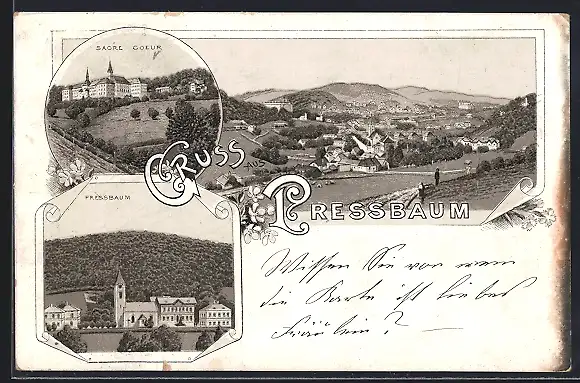 SACRE COEUR
GRUSS
AUS
PRESSBAUM
PRESSBAUM
Wissen Sie von wem
die Karte ist liebes
Fräulein? —